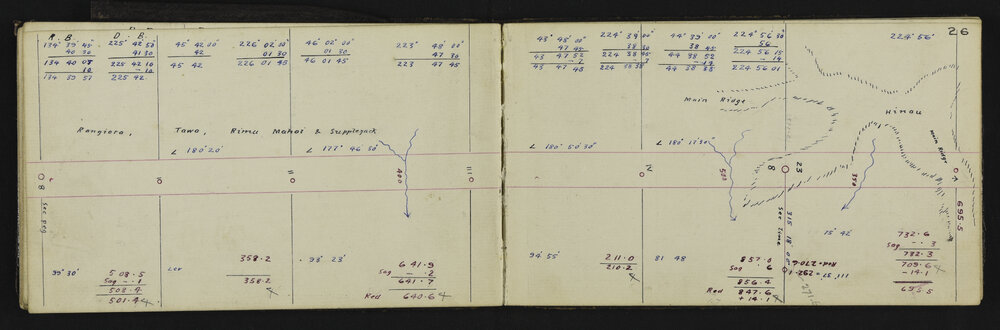 R. B. D. B.
134° 39' 45" 225° 42 50"
40 30 41 30
134 40 08 225 42 10
10 - 10
134 39 57 225 42
45° 42 00"
42
45 42
226° 02 00"
01 30
226 01 45
46° 02' 00"
01 30
46 01 45
223° 48 00"
47 30
223 47 45
Rangiora, Tawa, Rimu Mahoi & Supplejack
∠ 180° 20'
∠ 177° 46 30"
400
Sec peg
99° 30'
508.5
Sag - .1
508.4
501.4
Ler
358.2
358.2
93° 23'
641.9
Sag - .2
641.7
Red 640.6
26
43° 48' 00"
47 45
43 47 52
- 7
43 47 45
224° 39 00"
38 30
224 38 45
- 7
224 38 38
44° 39 00"
38 45
44 38 52
44 38 38
224° 56 30"
56
224 56 15
- 14
224 56 01
224° 56'
Main Ridge
Hinau
Main Ridge
∠ 180° 50' 30"
∠ 180° 17' 30"
IV
500
8
23
350
V
695.5
See Time
315 18 00"
94° 55
211.0
210.2
81 48
857.0
Sag .6
856.4
Red 847.6
+ 14.1
15° 42'
732.6
Sag - .3
732.3
709.6
- 14.1
695.5